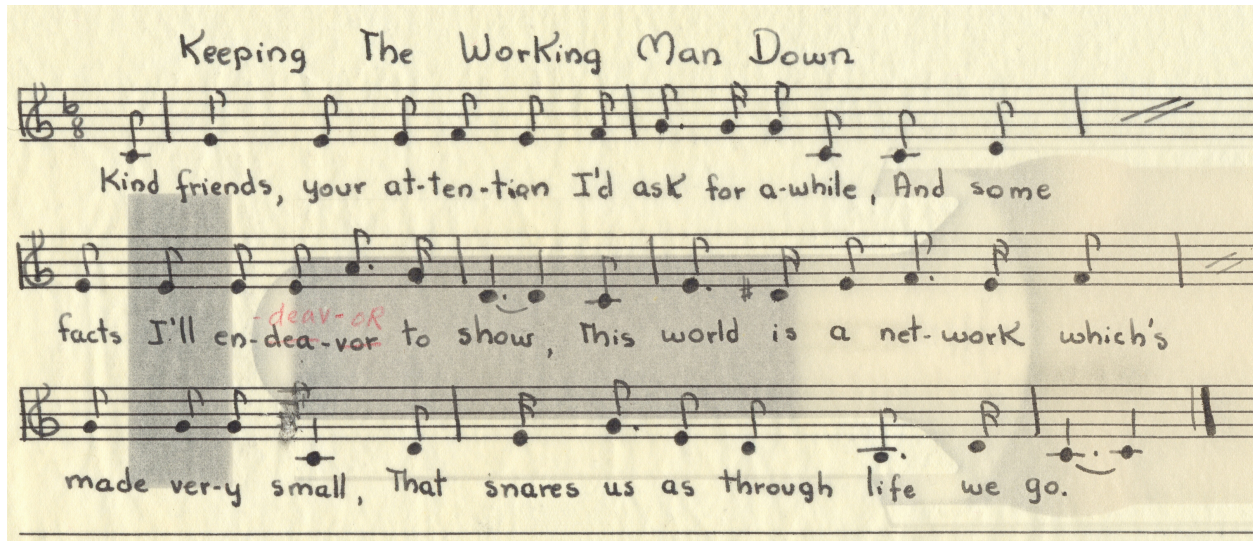 Keeping The Working Man Down
6
8
Kind friends, your at-ten-tion I'd ask for a-while, And some
-deav-oR
facts I'll en-dea-vor to show, This world is a net-work which's
made ver-y small, That snares us as through life we go.